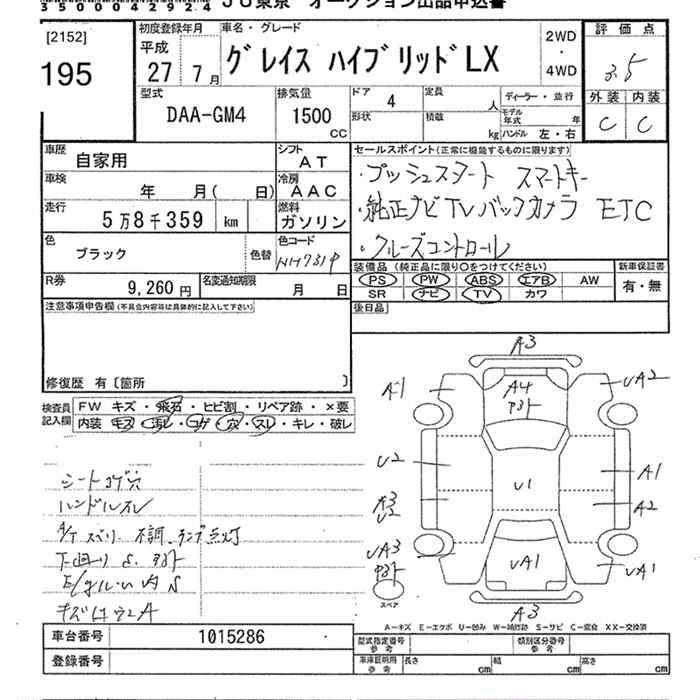 350004292４
JU東京 オークション出品申込書
[2152]
195
初度登録年月
平成
27 7月
車名・グレード
グレイス ハイブリッドLX
2WD
・
4WD
評価点
3.5
外装 内装
C C
型式
DAA-GM4
排気量
1500
CC
ドア 4
形状
定員 人
積載 kg
ディーラー・並行
モデル年式 年
ハンドル 左・右
車歴
自家用
シフト
AT
車検
年 月( 日)
冷房
AAC
走行
5万8千359 km
燃料
ガソリン
色
ブラック
色替
色コード
NH731P
R券
9,260円
名変通知期限
月 日
セールスポイント(正常に機能するものに限ります)
・プッシュスタート スマートキー
・純正ナビ TV バックカメラ ETC
・クルーズコントロール
装備品(純正品に限り○をつけてください)
PS PW ABS エアB AW
SR ナビ TV カワ
新車保証書
有・無
後日品
注意事項申告欄(不具合内容等は具体的に記入して下さい)
修復歴 有〔箇所 〕
検査員記入欄
FW キズ・飛石・ヒビ割・リペア跡・×要
内装 キズ・汚レ・コゲ・穴・スレ・キレ・破レ
シートコゲ穴
ハンドルスレ
A/T スベリ 不調 ランプ点灯
下回り S. アト
E/gルーム内 S
キズ
A3
A1
A4
アト
UA2
U2
U1
A1
A3
U2
A2
UA3
アト
UA1
UA1
スペア
A3
A－キズ E－エクボ U－凹み W－補修跡 S－サビ C－腐食 XX－交換済
車台番号 1015286
登録番号
型式指定番号
参考
類別区分番号
参考
車庫証明用
参考
長さ cm
幅 cm
高さ cm